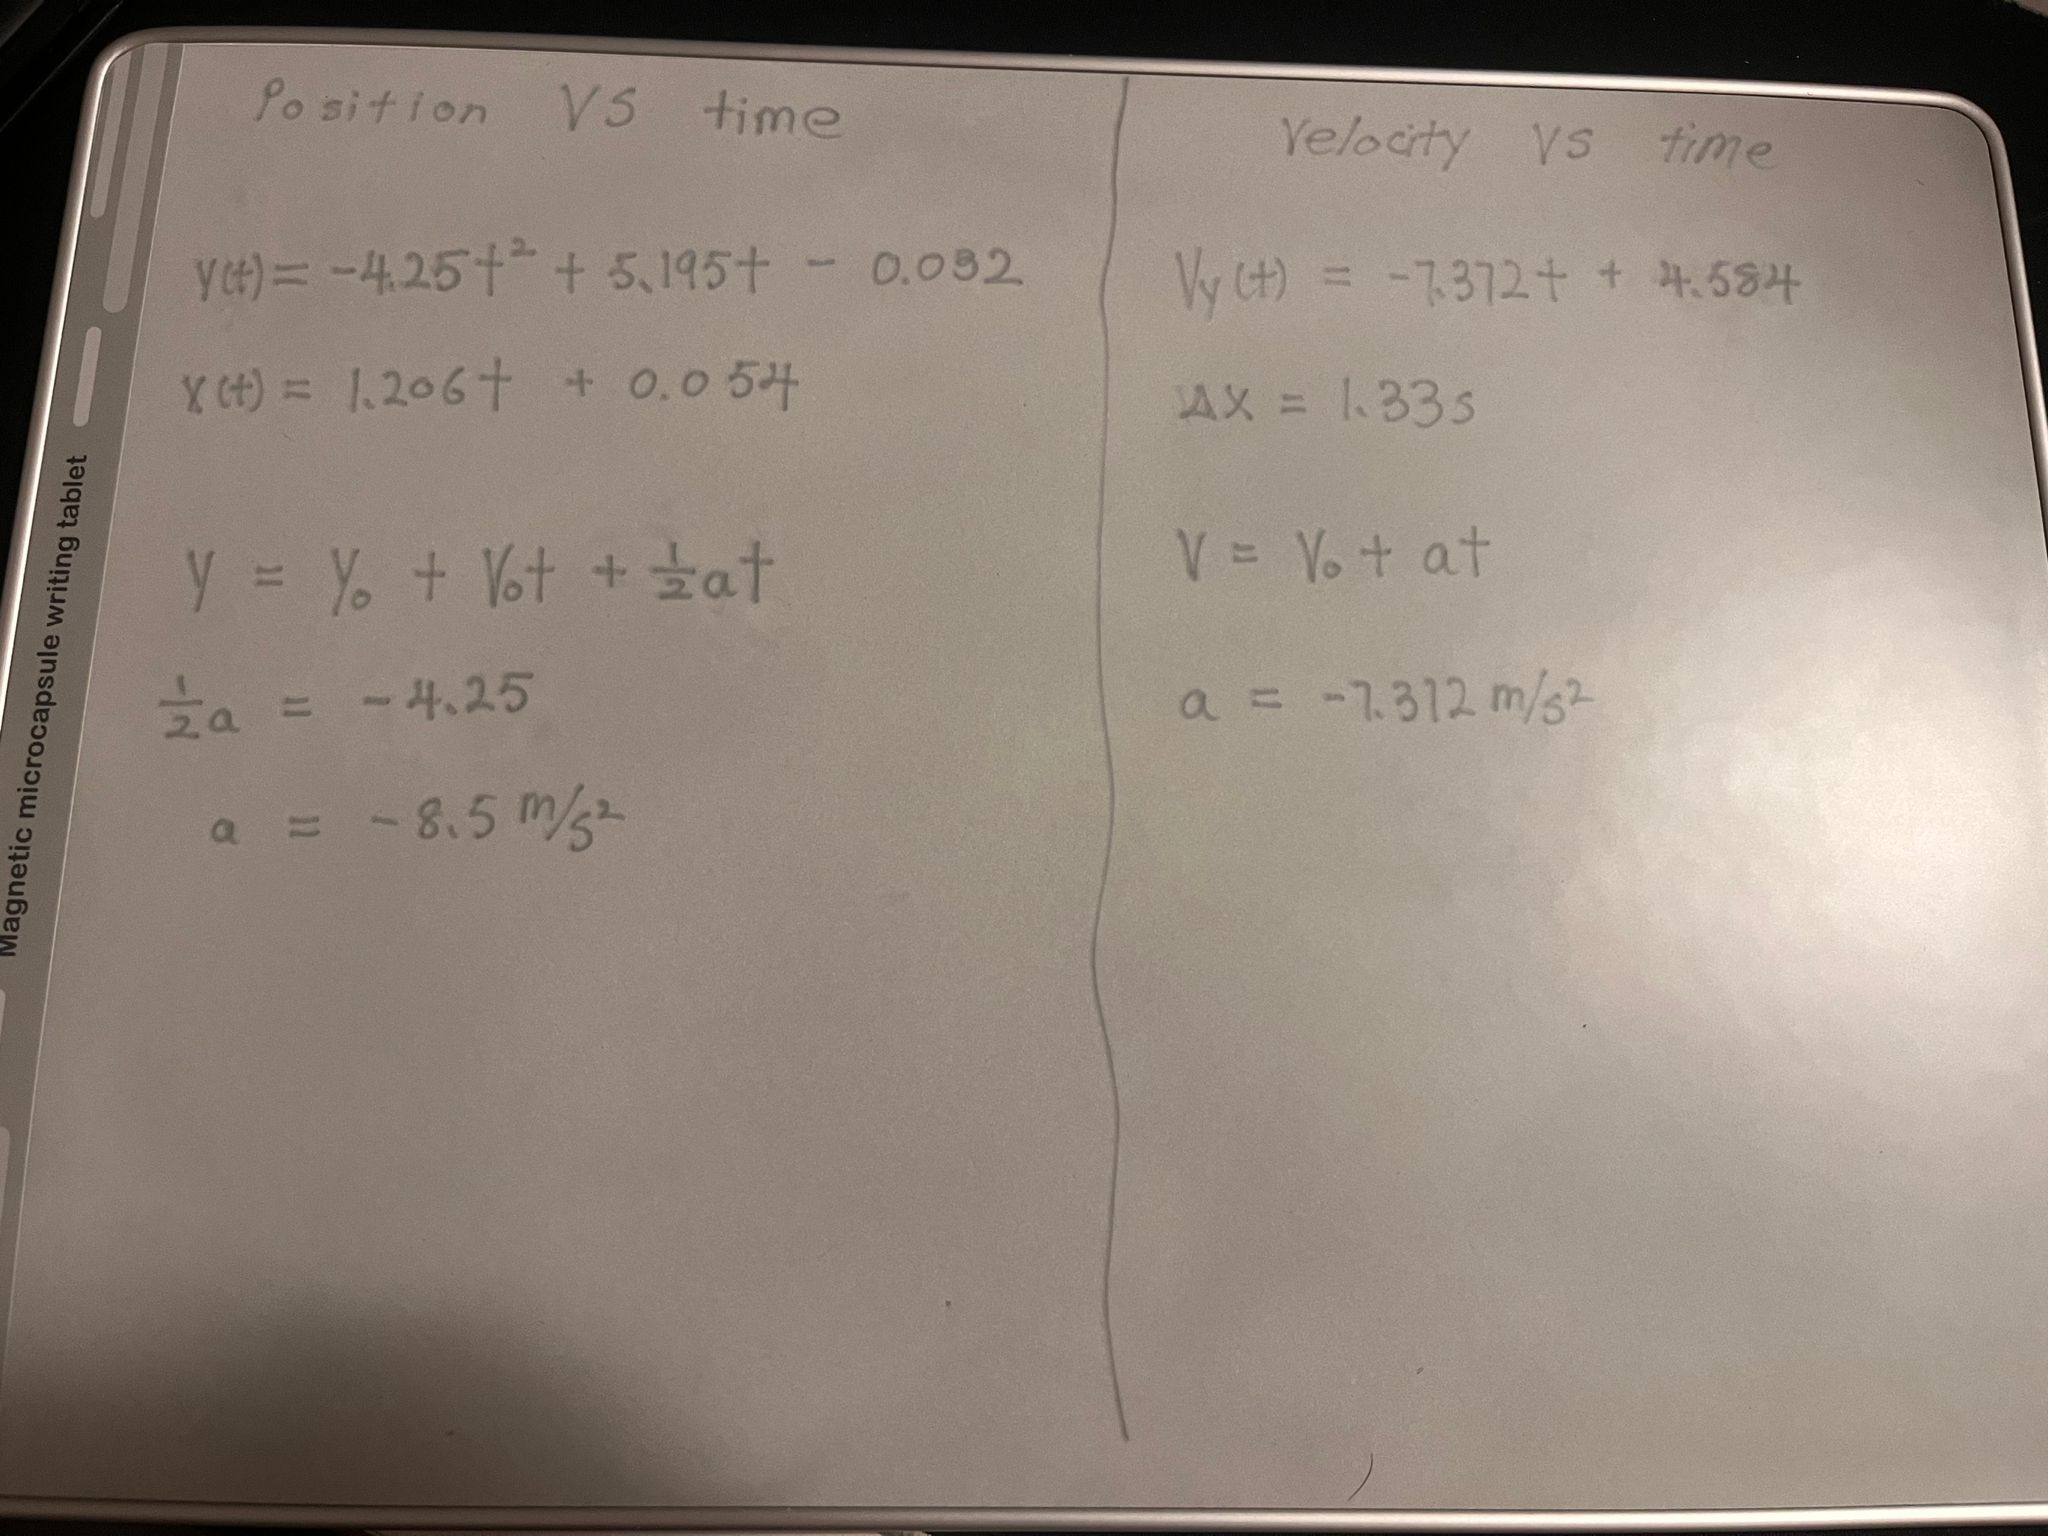 Position VS time
y(t) = -4.25t² + 5.195t - 0.032
x(t) = 1.206t + 0.054
y = y₀ + V₀t + ½at
½a = -4.25
a = -8.5 m/s²
Velocity VS time
Vy(t) = -7.372t + 4.584
ΔX = 1.33s
V = V₀ + at
a = -7.312 m/s²
Magnetic microcapsule writing tablet